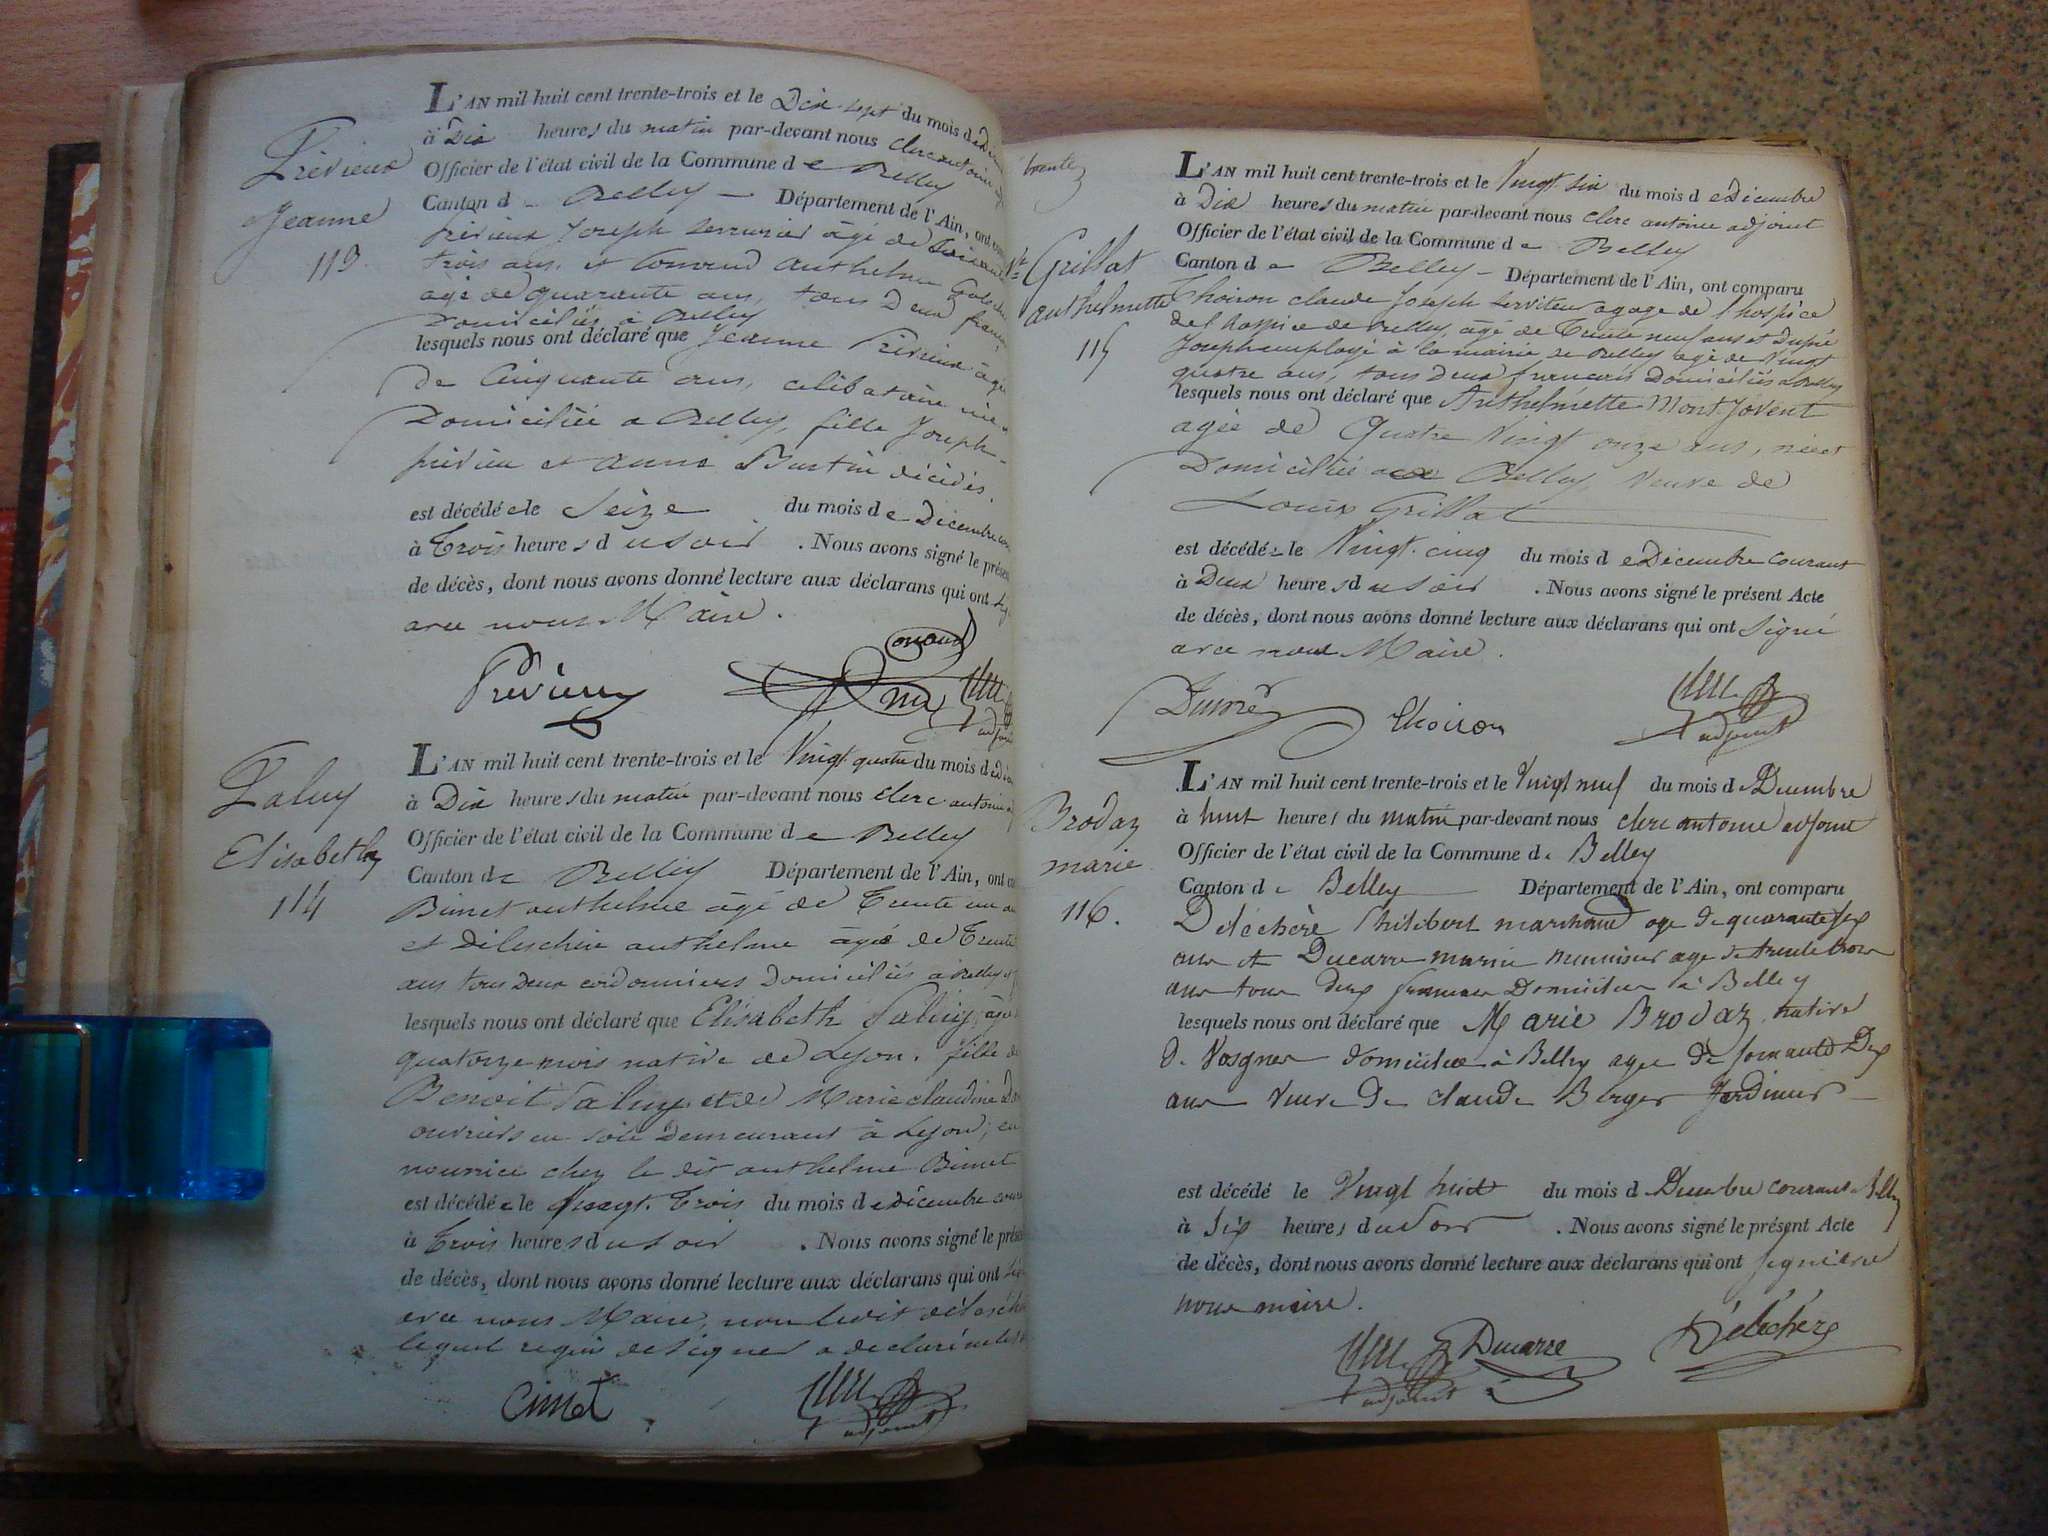 Prévieux
Jeanne
113
L'AN mil huit cent trente-trois et le Dix sept du mois de
à Dix heures du matin par-devant nous clerc antoine
Officier de l'état civil de la Commune de Belley
Canton d Belley Département de l'Ain, ont
prévieux Joseph serrurier âgé de
trois ans, et anthelme
agé de quarante ans, tous Deux
Domiciliés à Belley
lesquels nous ont déclaré que Jeanne Prévieux âgé
de Cinquante ans, célibataire née
Domiciliée a Belley, fille Joseph
prévieu et anne Burtin décédés.
est décédée le Seize du mois de Décembre
à Trois heures du soir . Nous avons signé le présen
de décès, dont nous avons donné lecture aux déclarans qui ont
avec nous Maire.
Prévieux
adjoint
Paluy
Elisabeth
114
L'AN mil huit cent trente-trois et le Vingt quatre du mois de
à Dix heures du matin par-devant nous clerc antoine
Officier de l'état civil de la Commune de Belley
Canton de Belley Département de l'Ain, ont
Bimet anthelme âgé de Trente un
et anthelme âgé de Trente
ans tous Deux cordonniers Domiciliés à Belley
lesquels nous ont déclaré que Elisabeth Paluy, âgé
quatorze mois native de Lyon, fille de
Benoit Paluy et de Marie claudine
ouvriers en soie Demeurant à Lyon, en
nourrice chez le dit anthelme Bimet
est décédée le Vingt. Trois du mois de Décembre
à Trois heures du soir . Nous avons signé le
de décès, dont nous avons donné lecture aux déclarans qui ont
avec nous Maire, non ledit
lequel requis de signer a déclaré
adjoint
trente
Vve Grillat
anthelmette
115
L'AN mil huit cent trente-trois et le Vingt six du mois de Décembre
à Dix heures du matin par-devant nous clerc antoine adjoint
Officier de l'état civil de la Commune de Belley
Canton de Belley Département de l'Ain, ont comparu
Thoiron claude Joseph serviteur agage de l'hospice
de l'hospice de Belley, âgé de Trente neuf ans et Dupré
Joseph employé à la mairie de Belley agé de Vingt
quatre ans, tous Deux français Domiciliés à Belley
lesquels nous ont déclaré que Anthelmette Montjovent
agée de Quatre Vingt onze ans, née et
Domiciliée a Belley Veuve de
Louis Grillat
est décédée le Vingt. cinq du mois de Décembre courant
à Deux heures du soir . Nous avons signé le présent Acte
de décès, dont nous avons donné lecture aux déclarans qui ont signé
avec nous Maire.
Dupré Thoiron
adjoint
Brodaz
marie
116.
L'AN mil huit cent trente-trois et le Vingt neuf du mois de Décembre
à huit heures du matin par-devant nous clerc antoine adjoint
Officier de l'état civil de la Commune de Belley
Canton de Belley Département de l'Ain, ont comparu
Deléchère Philibert marchand age de quarante six
ans et Ducarre marin menuisier age de trente trois
ans tous deux français Domicilies à Belley
lesquels nous ont déclaré que Marie Brodaz native
de domiciliee à Belley agee de soixante Dix
ans veuve De claude Berger Jardinier
est décédé le Vingt huit du mois d Decembre courant a Belley
à Six heures du soir . Nous avons signé le présent Acte
de décès, dont nous avons donné lecture aux déclarans qui ont signé avec
nous maire.
Ducarre Deléchère
adjoint